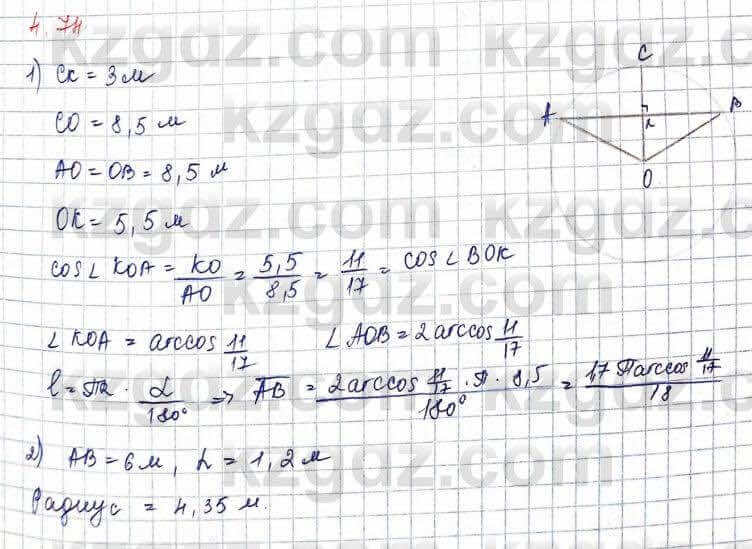 4.74
1) CK = 3 м
CO = 8,5 м
AO = OB = 8,5 м
OK = 5,5 м
cos∠KOA = KO/AO = 5,5/8,5 = 11/17 = cos∠BOK
∠KOA = arccos 11/17    ∠AOB = 2 arccos 11/17
l = πr · α/180° => AB = 2 arccos 11/17 · π · 8,5 / 180° = 17 π arccos 11/17 / 18
2) AB = 6 м, h = 1,2 м
Радиус = 4,35 м.
C
A
B
K
O
kzgdz.com